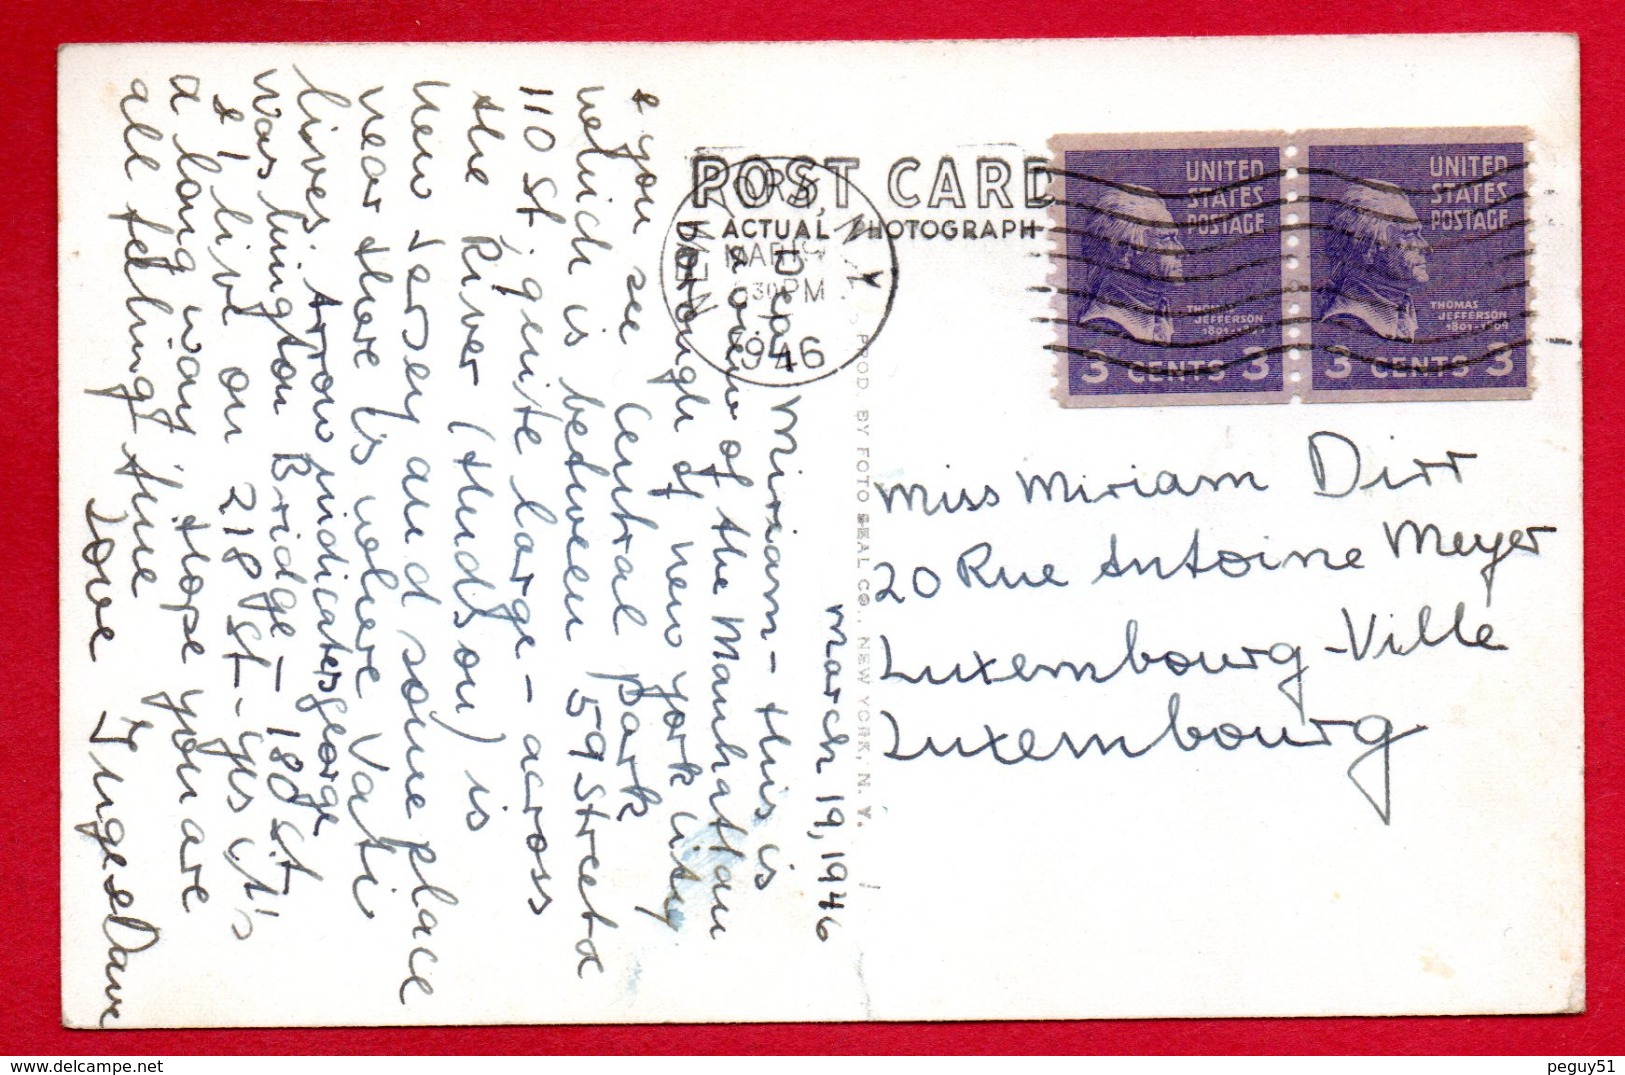 POST CARD
ACTUAL PHOTOGRAPH
NEW YORK, N.Y.
MAR 19
30 PM
1946
UNITED STATES POSTAGE
THOMAS JEFFERSON
1801-1809
3 CENTS 3
UNITED STATES POSTAGE
THOMAS JEFFERSON
1801-1809
3 CENTS 3
PROD. BY FOTO SEAL CO., NEW YORK, N. Y.
March 19, 1946
Dear Miriam - this is
a view of the Manhattan
Borough of New York City
& you see Central Park
which is between 59 Street &
110 St, quite large - across
the River (Hudson) is
New Jersey and someplace
near there is where Vati
lives. Arrow indicates George
Washington Bridge - 180 St.
& I live on 218 St - yes it's
a long way. Hope you are
all feeling fine
Love Inge & Dave
Miss Miriam Dirr
20 Rue Antoine Meyer
Luxembourg-Ville
Luxembourg
peguy51